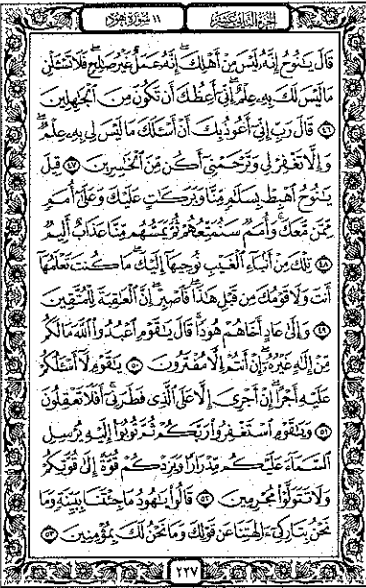 الجزء الثاني عشر
١١ سورة هود
قَالَ يَٰنُوحُ إِنَّهُۥ لَيْسَ مِنْ أَهْلِكَ ۖ إِنَّهُۥ عَمَلٌ غَيْرُ صَٰلِحٍ ۖ فَلَا تَسْـَٔلْنِ
مَا لَيْسَ لَكَ بِهِۦ عِلْمٌ ۖ إِنِّىٓ أَعِظُكَ أَن تَكُونَ مِنَ ٱلْجَٰهِلِينَ
٤٦ قَالَ رَبِّ إِنِّىٓ أَعُوذُ بِكَ أَنْ أَسْـَٔلَكَ مَا لَيْسَ لِى بِهِۦ عِلْمٌ ۖ
وَإِلَّا تَغْفِرْ لِى وَتَرْحَمْنِىٓ أَكُن مِّنَ ٱلْخَٰسِرِينَ ٤٧ قِيلَ
يَٰنُوحُ ٱهْبِطْ بِسَلَٰمٍ مِّنَّا وَبَرَكَٰتٍ عَلَيْكَ وَعَلَىٰٓ أُمَمٍ
مِّمَّن مَّعَكَ ۚ وَأُمَمٌ سَنُمَتِّعُهُمْ ثُمَّ يَمَسُّهُم مِّنَّا عَذَابٌ أَلِيمٌ
٤٨ تِلْكَ مِنْ أَنۢبَآءِ ٱلْغَيْبِ نُوحِيهَآ إِلَيْكَ ۖ مَا كُنتَ تَعْلَمُهَآ
أَنتَ وَلَا قَوْمُكَ مِن قَبْلِ هَٰذَا ۖ فَٱصْبِرْ ۖ إِنَّ ٱلْعَٰقِبَةَ لِلْمُتَّقِينَ
٤٩ وَإِلَىٰ عَادٍ أَخَاهُمْ هُودًا ۚ قَالَ يَٰقَوْمِ ٱعْبُدُوا۟ ٱللَّهَ مَا لَكُم
مِّنْ إِلَٰهٍ غَيْرُهُۥٓ ۖ إِنْ أَنتُمْ إِلَّا مُفْتَرُونَ ٥٠ يَٰقَوْمِ لَآ أَسْـَٔلُكُمْ
عَلَيْهِ أَجْرًا ۖ إِنْ أَجْرِىَ إِلَّا عَلَى ٱلَّذِى فَطَرَنِىٓ ۚ أَفَلَا تَعْقِلُونَ
٥١ وَيَٰقَوْمِ ٱسْتَغْفِرُوا۟ رَبَّكُمْ ثُمَّ تُوبُوٓا۟ إِلَيْهِ يُرْسِلِ
ٱلسَّمَآءَ عَلَيْكُم مِّدْرَارًا وَيَزِدْكُمْ قُوَّةً إِلَىٰ قُوَّتِكُمْ
وَلَا تَتَوَلَّوْا۟ مُجْرِمِينَ ٥٢ قَالُوا۟ يَٰهُودُ مَا جِئْتَنَا بِبَيِّنَةٍ وَمَا
نَحْنُ بِتَارِكِىٓ ءَالِهَتِنَا عَن قَوْلِكَ وَمَا نَحْنُ لَكَ بِمُؤْمِنِينَ ٥٣
٢٢٧